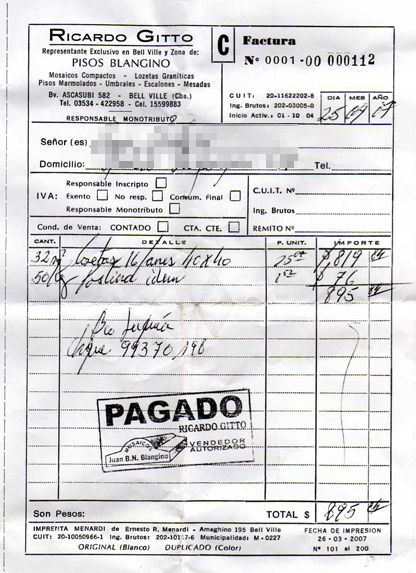 RICARDO GITTO
Representante Exclusivo en Bell Ville y Zona de:
PISOS BLANGINO
Mosaicos Compactos - Lozetas Graníticas
Pisos Marmolados - Umbrales - Escalones - Mesadas
Bv. ASCASUBI 582 - BELL VILLE (Cba.)
Tel. 03534 - 422958 - Cel. 15599883
RESPONSABLE MONOTRIBUTO
C
Factura
Nº 0001-00 000112
CUIT: 20-11622202-8
Ing. Brutos: 202-03005-0
Inicio Activ.: 01-10 04
DIA MES AÑO
25 07
Señor (es)
Domicilio:
Tel.
IVA:
Responsable Inscripto
Exento No resp. Consum. Final
Responsable Monotributo
C.U.I.T. Nº
Ing. Brutos
Cond. de Venta: CONTADO CTA. CTE.
REMITO Nº
CANT. DETALLE P. UNIT. IMPORTE
32 m² lozetas 16 panes 40x40 25 819
50 kg pastina idem 1 $ 76
895
Bco
cheque 99370198
PAGADO
RICARDO GITTO
VENDEDOR
AUTORIZADO
MOSAICOS
Juan B.N. Blangino
Son Pesos:
TOTAL $ 895
IMPRENTA MENARDI de Ernesto R. Menardi - Ameghino 195 Bell Ville
CUIT: 20-10050966-1 Ing. Brutos: Municipalidad: M-0227
ORIGINAL (Blanco) DUPLICADO (Color)
FECHA DE IMPRESION
26-03-2007
Nº 101 al 200